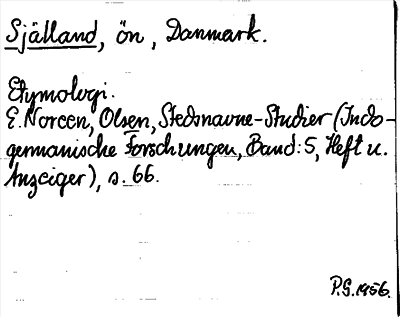 Själland, ön, Danmark.
Etymologi.
E. Noreen, Olsen, Stedsnavne-Studier (Indo-
germanische Forschungen, Band: 5, Heft u.
Anzeiger), s. 66.
P.G. 1956.